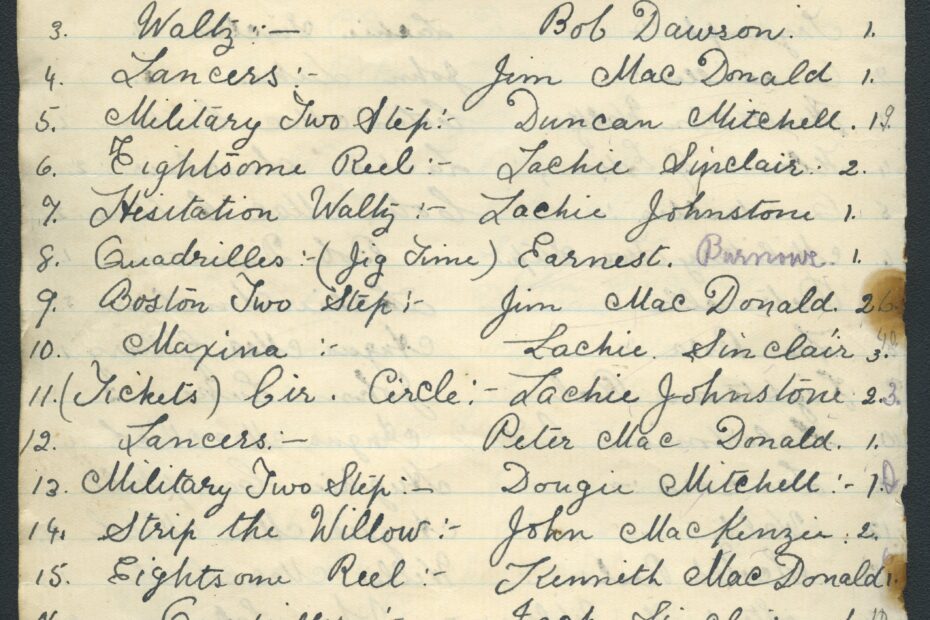 3. Waltz :- Bob Dawson. 1.
4. Lancers :- Jim Mac Donald 1.
5. Military Two Step :- Duncan Mitchell. 1
6. Eightsome Reel :- Lachie Sinclair. 2.
7. Hesitation Waltz :- Lachie Johnstone 1.
8. Quadrilles :- (Jig Time) Earnest. 1.
9. Boston Two Step :- Jim Mac Donald. 2
10. Maxina :- Lachie. Sinclair 3.
11. (Tickets) Cir. Circle :- Lachie Johnstone 2.3.
12. Lancers :- Peter Mac Donald. 1.
13. Military Two Step :- Dougie Mitchell :- 1.
14. Strip the Willow :- John MacKenzie. 2.
15. Eightsome Reel :- Kenneth MacDonald 1.